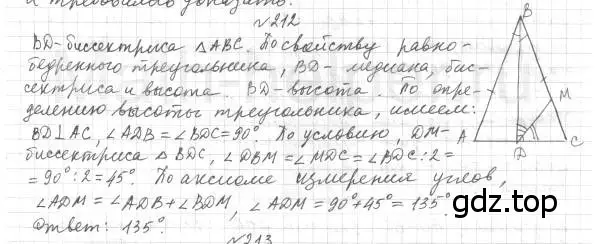 и требовалось доказать.
№212
BD-биссектриса △ABC. По свойству равно-
бедренного треугольника, BD- медиана, бис-
сектриса и высота. BD-высота. По опре-
делению высоты треугольника, имеем:
BD⊥AC, ∠ADB=∠BDC=90°. По условию, DM-
биссектриса △ BDC, ∠DBM=∠MDC=∠BDC:2=
=90°:2=45°. По аксиоме измерения углов,
∠ADM=∠ADB+∠BDM, ∠ADM=90°+45°=135°.
Ответ: 135°.
№213
B
M
A
D
C
gdz.top